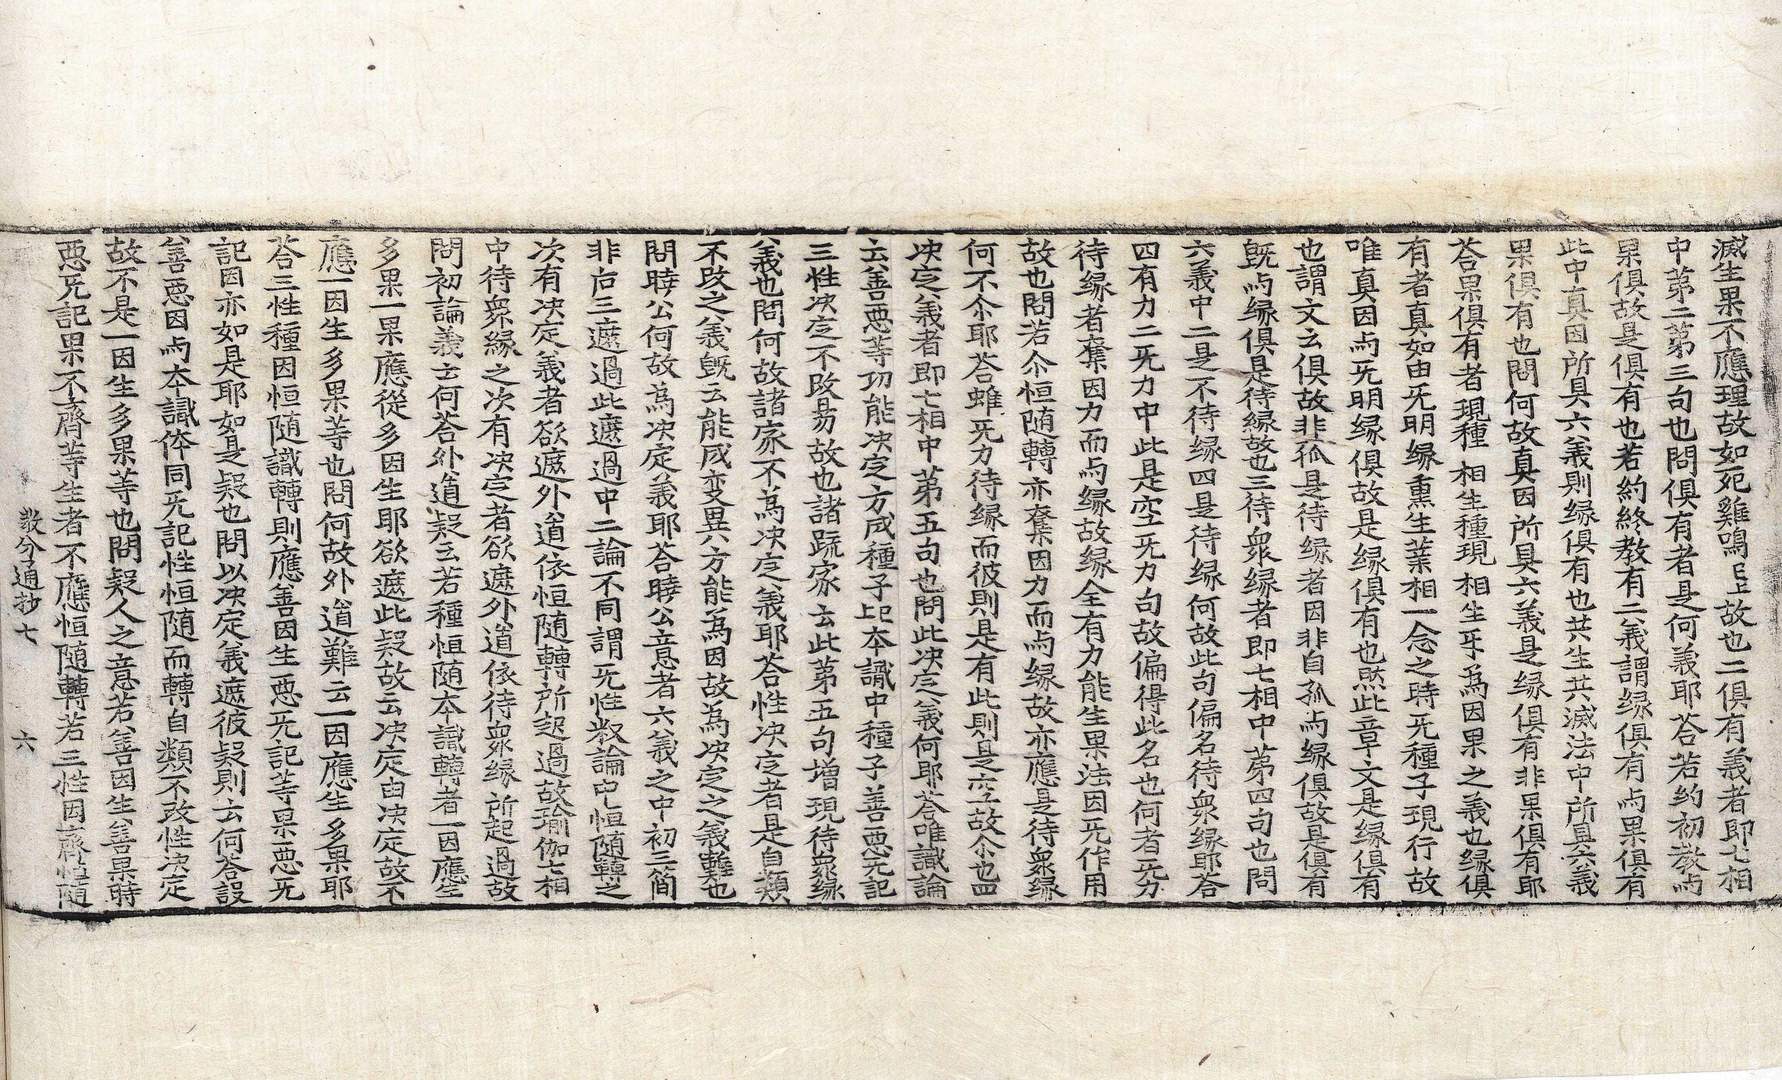 滅生果不應理故如死雞鳴上故也二俱有義者即七相
中苐二苐三句也問俱有者是何義耶荅若約初教与
果俱故是俱有也若約終教有二義謂縁俱有与果俱有
此中真因所具六義則縁俱有也共生共滅法中所具六義
果俱有也問何故真因所具六義是縁俱有非果俱有耶
荅果俱有者現種相生種現相生乎為因果之義也縁俱
有者真如由旡明縁熏生業相一念之時旡種子現行故
唯真因与旡明縁俱故是縁俱有也然此章文是縁俱有
也謂文云俱故非孤是待縁者因非自孤与縁俱故是俱有
既与縁俱是待縁故也三待衆縁者即七相中苐四句也問
六義中二是不待縁四是待縁何故此句偏名待衆縁耶荅
四有力二旡力中此是空旡力句故偏得此名也何者旡力
待縁者奪因力而与縁故縁全有力能生果法因旡作用
故也問若尒恒随轉亦奪因力而与縁故亦應是待衆縁
何不尒耶荅雖旡力待縁而彼則是有此則是空故尒也四
决定義者即七相中苐五句也問此决定義何耶荅唯識論
云善惡等功能决定方成種子此本識中種子善惡旡記
三性决定不改易故也諸䟽家云此苐五句增現待衆縁
義也問何故諸家不為决定義耶荅性决定者是自類
不改之義既云能成変異方能為因故為决定之義難也
問暁公何故為决定義耶荅暁公意者六義之中初三簡
非后三遮過此遮過中二論不同謂旡性教論中恒随轉之
次有决定義者欲遮外道依恒随轉所起過故瑜伽七相
中待衆縁之次有决定者欲遮外道依待衆縁所起過故
問初論義云何荅外道疑云若種恒随本識轉者一因應生
多果一果應從多因生耶欲遮此疑故云决定由决定故不
應一因生多果等也問何故外道難云一因應生多果耶
荅三性種因恒随識轉則應善因生惡旡記等果惡旡
記因亦如是耶如是疑也問以决定義遮彼疑則云何荅設
善惡因与本識体同旡記性恒随而轉自類不改性决定
故不是一因生多果等也問疑人之意若善因生善果時
惡旡記果不齊等生者不應恒随轉若三性因齊恒随
教分通抄七　六